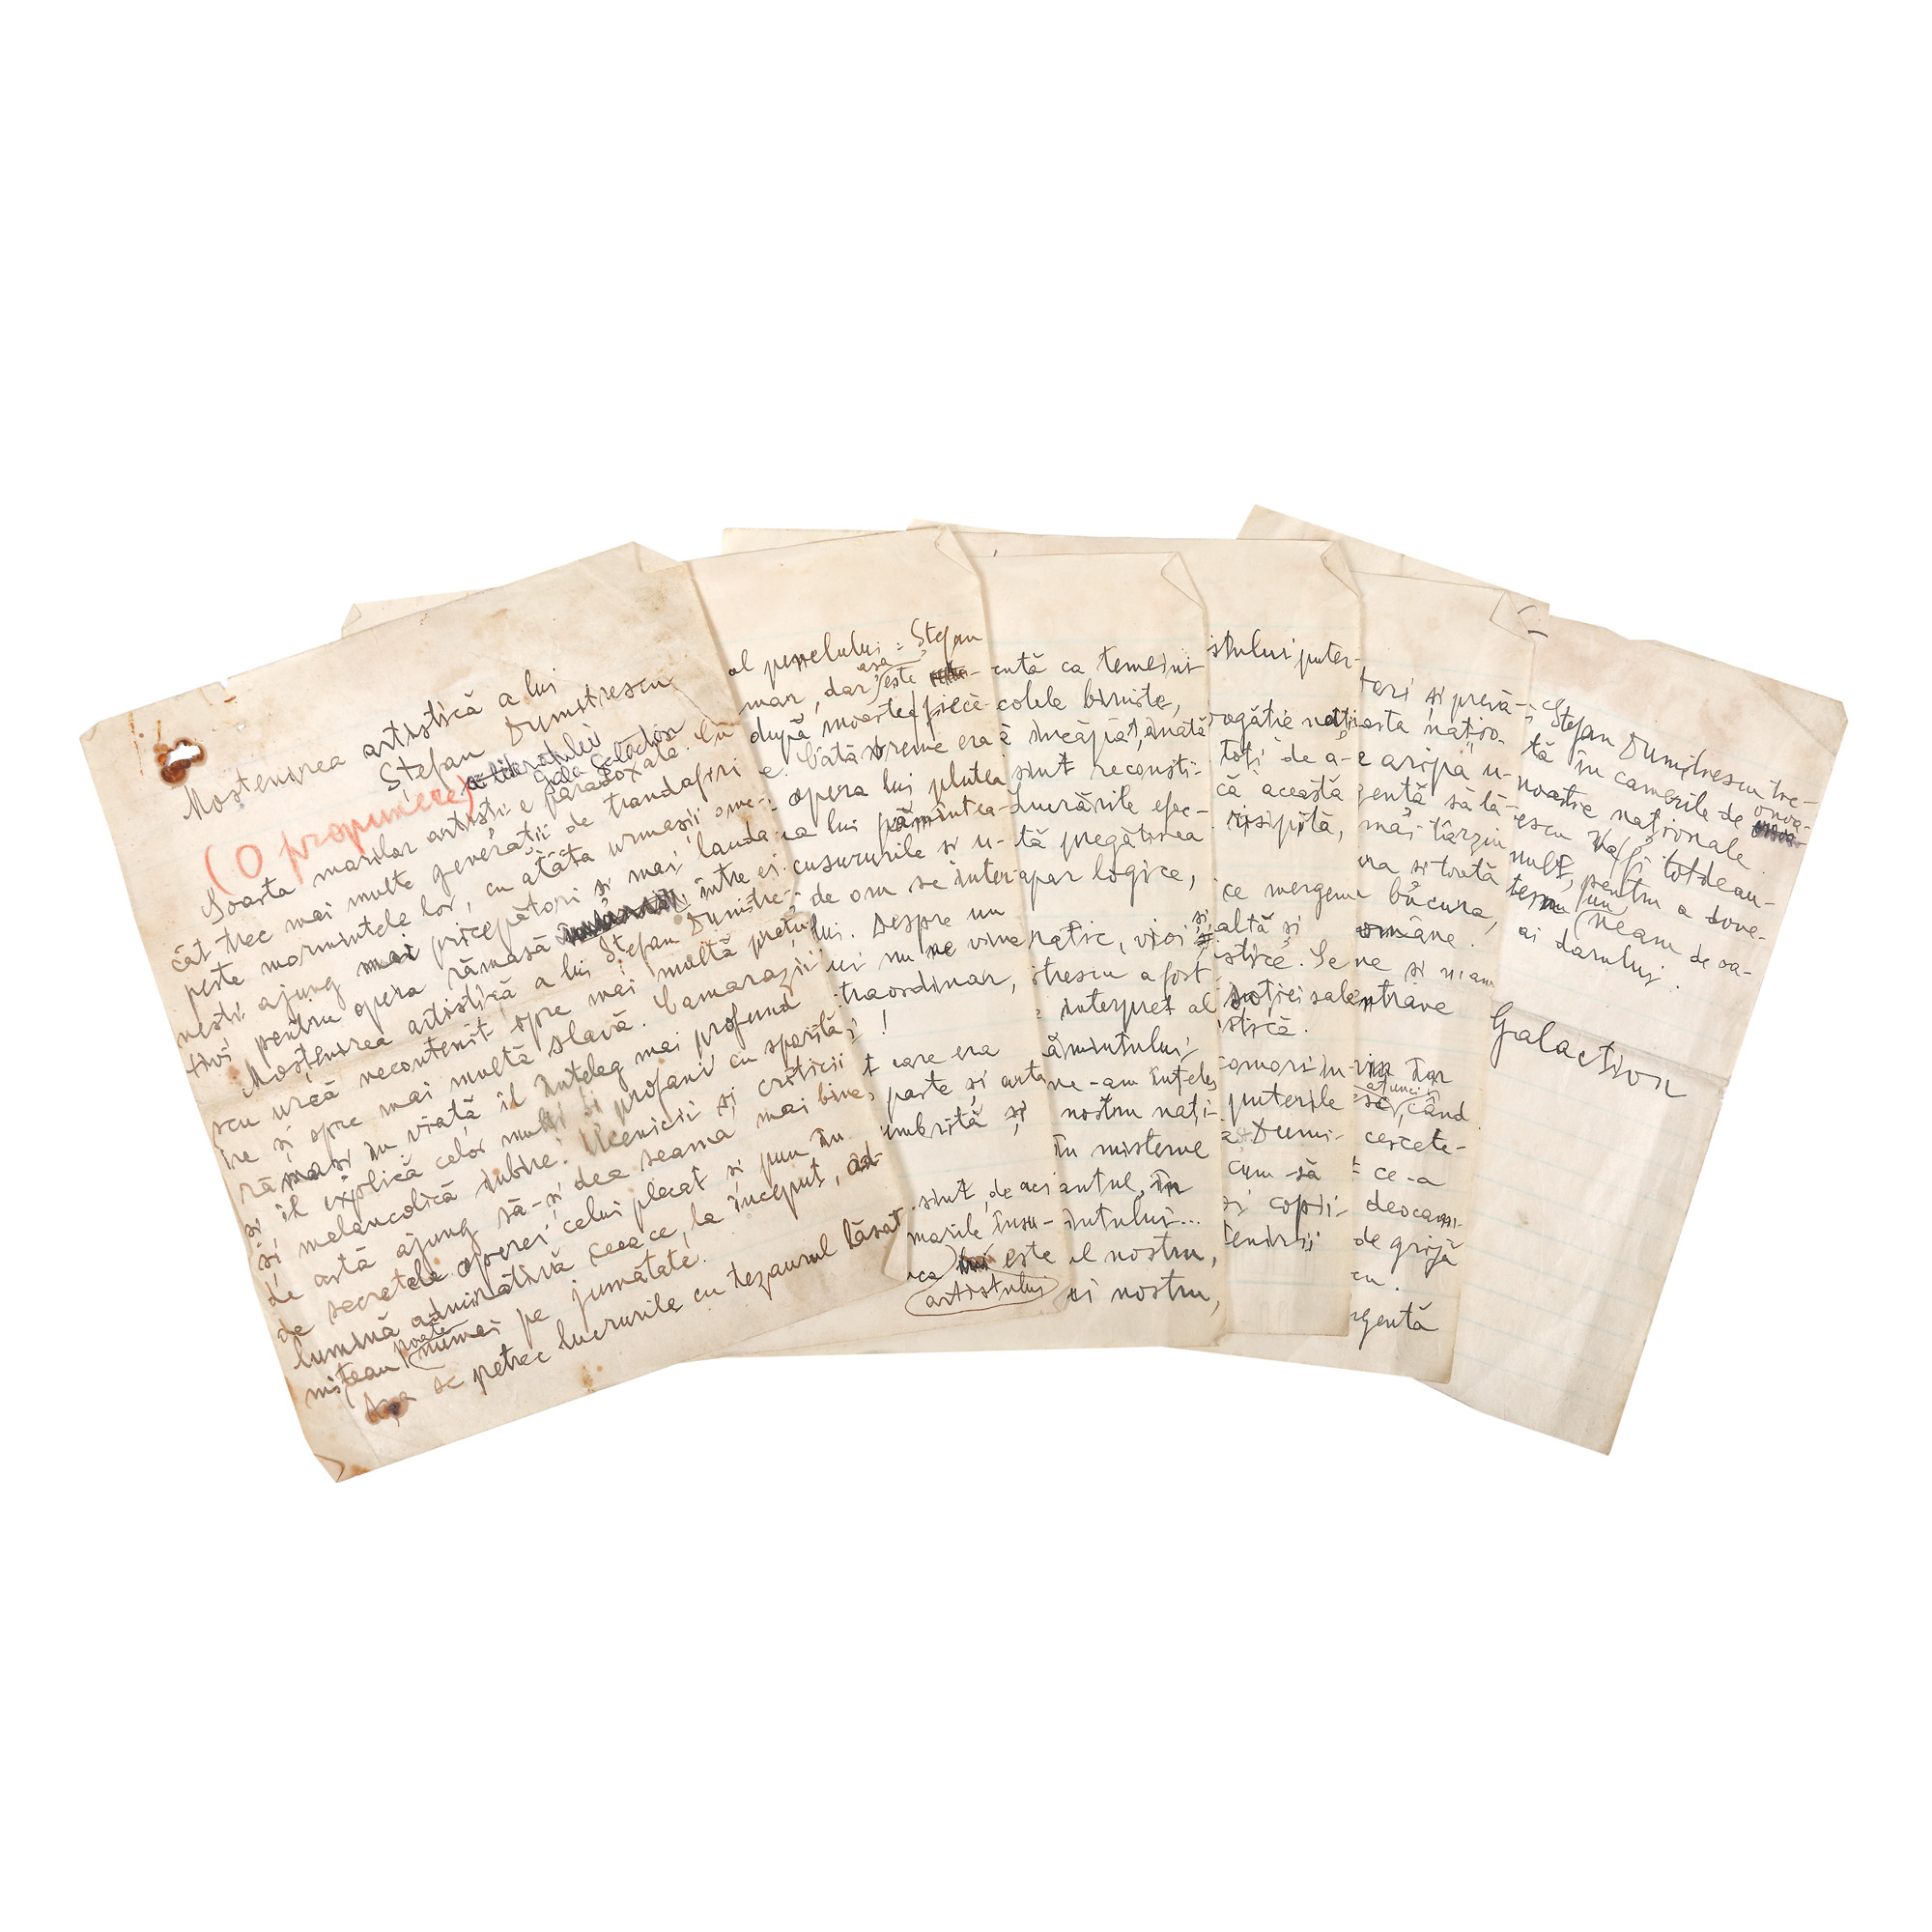 Moștenirea artistică a lui
Ștefan Dumitrescu
(O propunere) a literatului
Gala Galaction
Soarta marilor artiști e paradoxată. Cu
cât trec mai multe generații de trandafiri
peste mormintele lor, cu atâta urmașii ome-
nești ajung mai pricepători și mai lauda
tivi pentru opera rămasă între ei.
Moștenirea artistică a lui Ștefan Dumitre-
scu urcă necontenit spre mai multă prețui
re și spre mai multă slavă. Camarazii
rămași în viață îl înțeleg mai profund
și îl explică celor mulți și profani cu sporită
și melancolică iubire. Ucenicii și criticii
de artă ajung să-și dea seama mai bine,
de secretele operei celui plecat și pun în
lumină admirativă ceeace, la început, ad-
mițeau poate numai pe jumătate.
Așa se petrec lucrurile cu tezaurul lăsat
al penelului: Ștefan
mar, dar așa este
după moarte, fiece
e. Câtă vreme era
opera lui plutea
a lui pămîntea-
cusururile și u-
de om se inter
lui. Despre un
ui nu ne vine
traordinar,
!
t care era
parte și arta
umbrită și
sint, de aci
marile însu-
ica este
artistului
cută ca temeiu
colele biruite,
ă încăpăț, ânată
sint reconsti-
lucrările efec-
tă pregătirea
apar logice,
natic, vioi și
itrescu a fost
interpret al
ământului,
ne-am înțeles
nostru nați-
în misterne
antul, în
intului...
el nostru,
ei nostru,
istului puter-
rogăție nați
toți de a-
că această
risipită,
ce mergem
altă și
istice. Se
soției sale
istică.
comori in-
puterile
a Dumi-
cum-să
și copii-
tenirii
tori și prevă-
asta națio-
e aripă u-
gentă să lă-
mai târziu
ra și toată
bucura,
omâne.
ne și n'am
ntrăve
în Iar
atunci
se, când
cercete-
t ce-a
deocam-
de grijă
cu.
rgentă
Ștefan Dumitrescu tre-
tă în camerile de onoa-
noastre naționale
escu va fi totdeau-
mult, pentru a dove-
tem un neam de oa-
ai darului.
Galaction